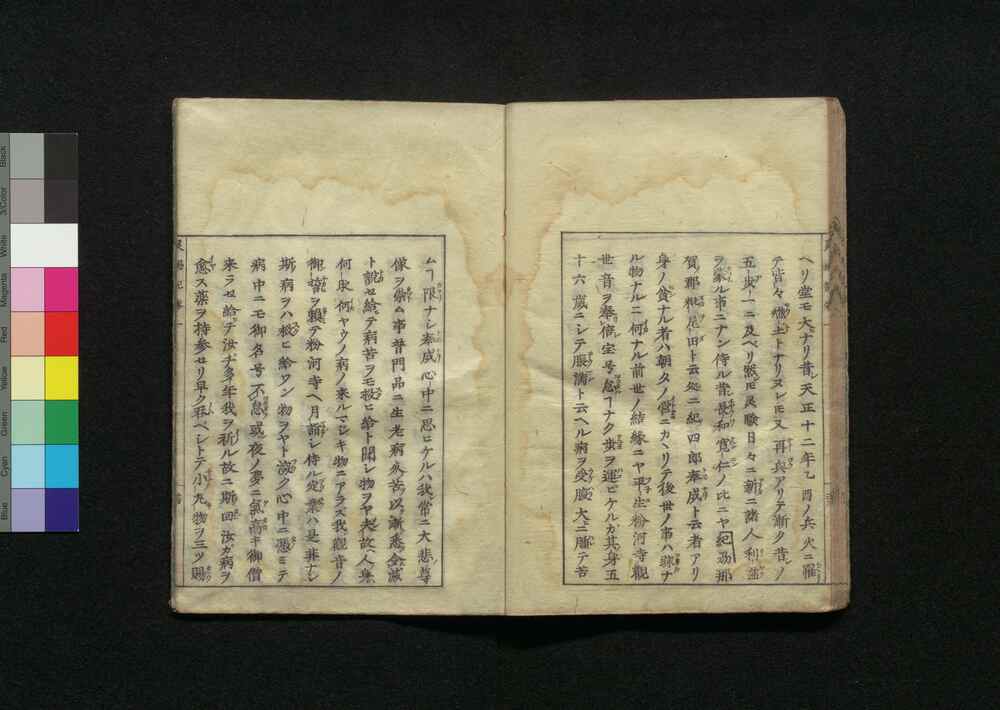 ヘリ堂モ大ナリ昔シ天正十二年乙酉ノ兵火ニ罹
テ皆々燼土トナリヌレモ又再興アリテ漸ク昔シノ
五歩一ニ及ベリ然モ灵驗日々ニ新ニ諸人利益
ヲ蒙ル市ニナン侍ル昔長和寛仁ノ比ニヤ紀刕那
賀那粃花田ト云処ニ紀四郎奉成ト云者アリ
身ノ貧ナル者ハ朝夕ノ營ニカヽリテ後世ノ事ハ疎ナ
ル物ナルニ何ナル前世ノ結縁ニヤ平生粉河寺觀
世音ヲ奉信宝号怠ナク歩ヲ運ビケルガ其身五
十六歳ニシテ脹満ト云ヘル病ヲ受腹大ニ腫テ苦
ムヿ限ナシ奉成心中ニ思ヒケルハ我常ニ大悲尊
像ヲ崇ム事普門品ニ生老病死苦以漸悉令滅
ト説セ給テ病苦ヲモ救ヒ給ト聞シ物ヲヤ夫故ヘ人皃
何ノ何ヤウノ病ノ来ルマジキ物ニアラズ我觀音ノ
御誓ヲ頼テ粉河寺ヘ月詣シ侍ル定業ハ是非ナシ
斯病ヲハ救ヒ給ワン物ヲヤト深ク心中ニ憑ミテ
病中ニモ御名号不怠或夜ノ夢ニ氣高キ御僧
来ラセ給テ汝ヂ多年我ヲ祈ル故ニ斯回汝ガ病ヲ
愈ス薬ヲ持参セリ早ク呑ベシトテ小丸物ヲ三ツ賜
Black
3/Color
White
Magenta
Red
Yellow
Green
Cyan
Blue